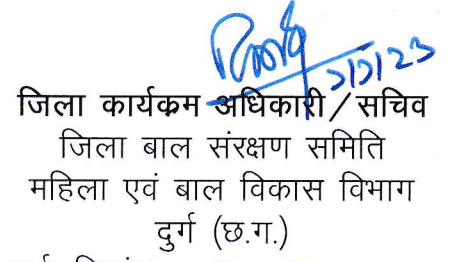 जिला कार्यक्रम अधिकारी/सचिव
जिला बाल संरक्षण समिति
महिला एवं बाल विकास विभाग
दुर्ग (छ.ग.)